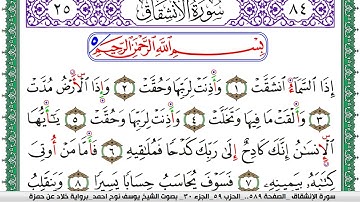 ٢٥ سُورَةُ الْإِنْشِقَاقِ ٨٤
بِسْمِ اللَّهِ الرَّحْمَٰنِ الرَّحِيمِ
إِذَا السَّمَاءُ انْشَقَّتْ ١ وَأَذِنَتْ لِرَبِّهَا وَحُقَّتْ ٢ وَإِذَا الْأَرْضُ مُدَّتْ
٣ وَأَلْقَتْ مَا فِيهَا وَتَخَلَّتْ ٤ وَأَذِنَتْ لِرَبِّهَا وَحُقَّتْ ٥ يَٰأَيُّهَا
الْإِنْسَٰنُ إِنَّكَ كَادِحٌ إِلَىٰ رَبِّكَ كَدْحًا فَمُلَٰقِيهِ ٦ فَأَمَّا مَنْ أُوتِيَ
كِتَٰبَهُ بِيَمِينِهِ ٧ فَسَوْفَ يُحَاسَبُ حِسَابًا يَسِيرًا ٨ وَيَنْقَلِبُ
سورة الإنشقاق.. الصفحة ٥٨٩.. الحزب ٥٩ .الجزء ٣٠ .. بصوت الشيخ يوسف نوح احمد برواية خلاد عن حمزة